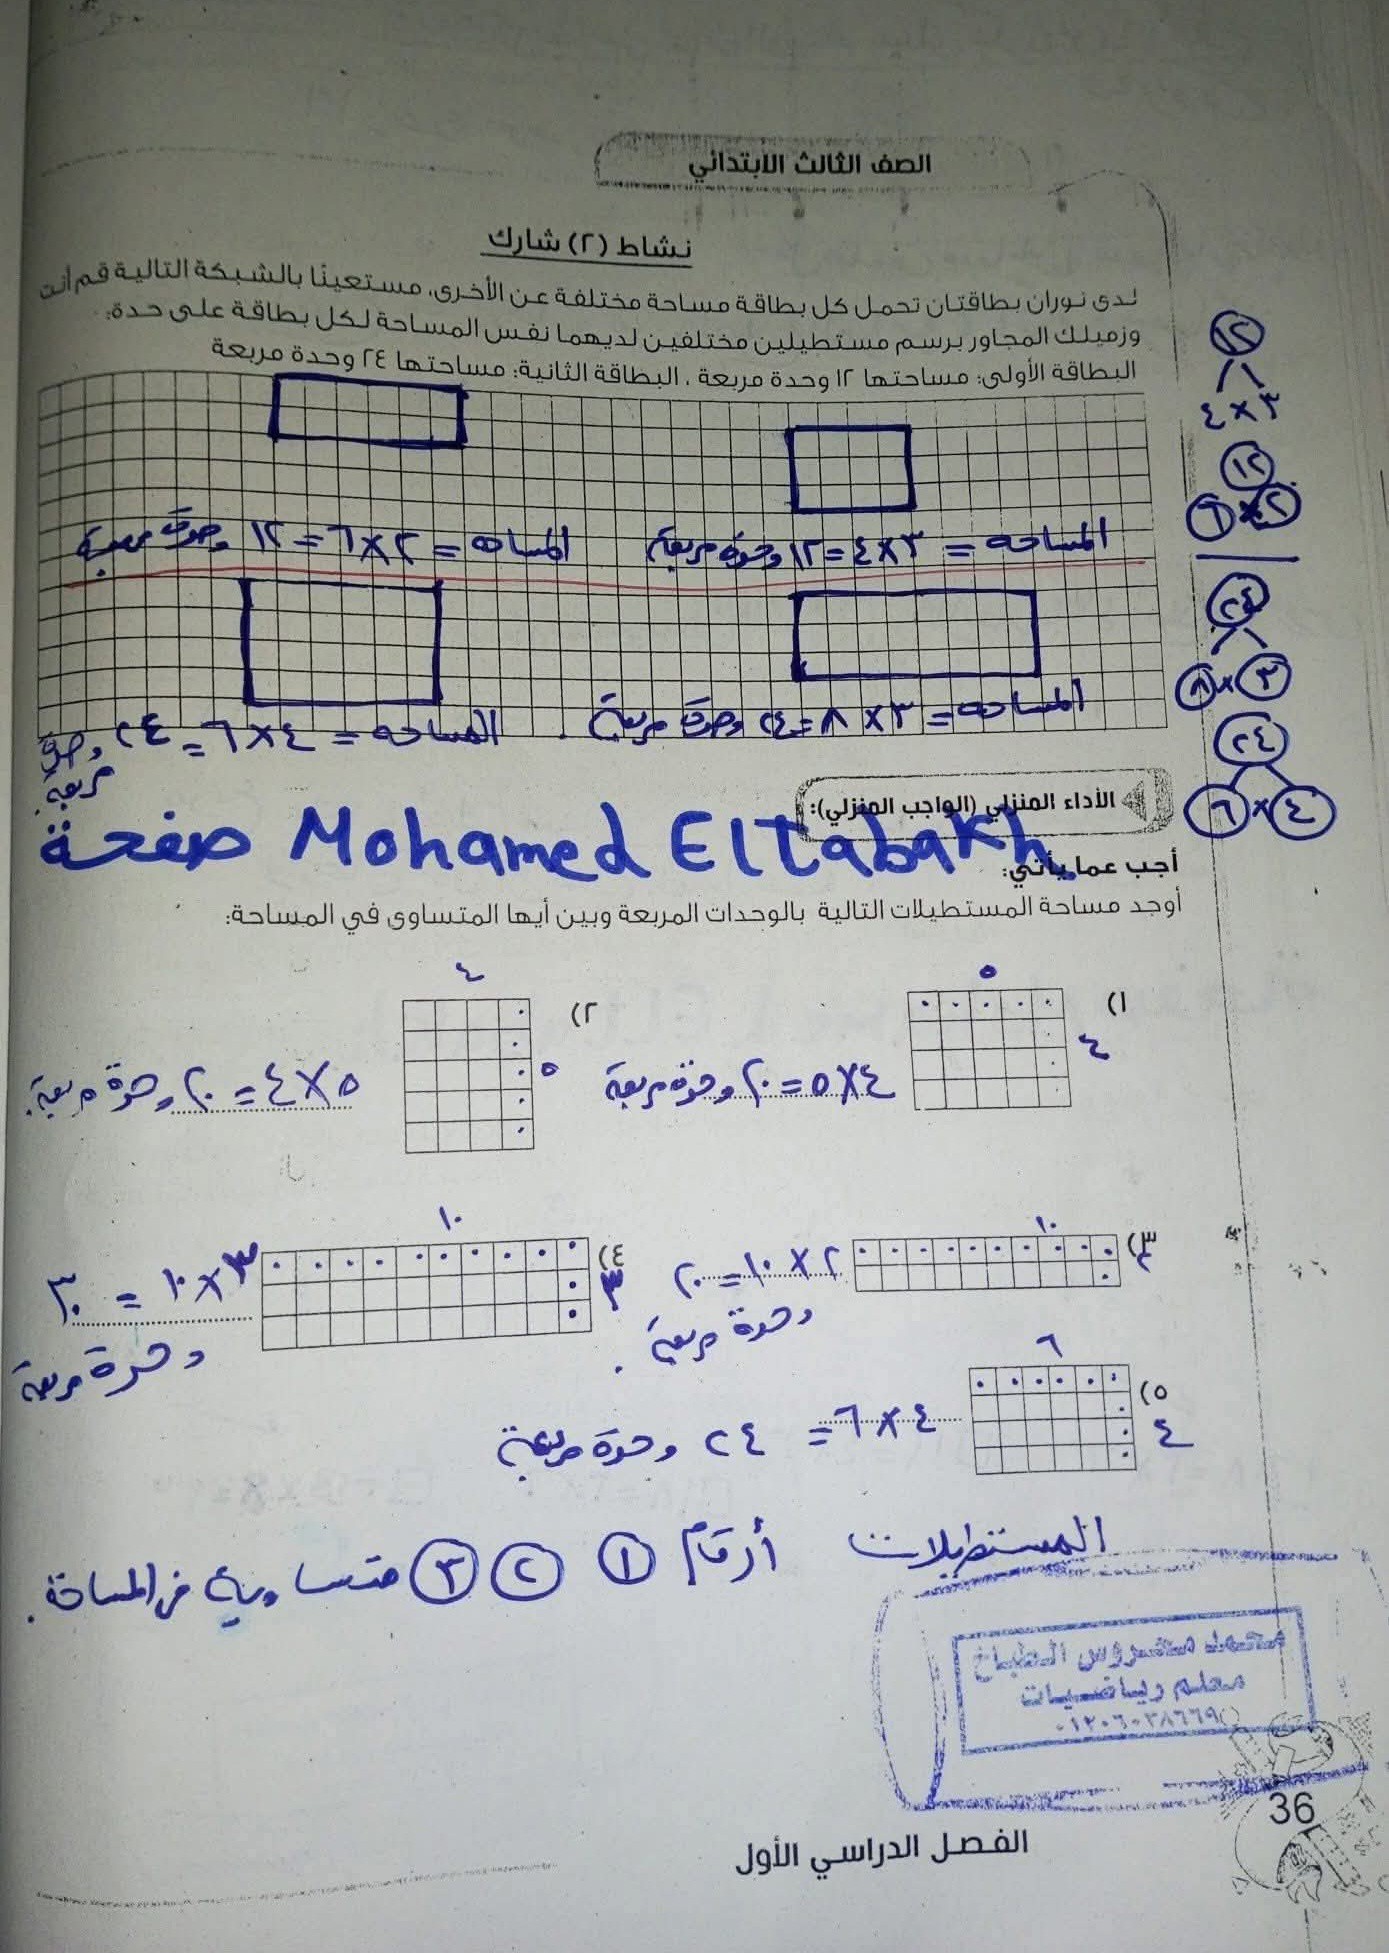 الصف الثالث الابتدائي
نشاط (٢) شارك
لدى نوران بطاقتان تحمل كل بطاقة مساحة مختلفة عن الأخرى، مستعينًا بالشبكة التالية قم أنت
وزميلك المجاور برسم مستطيلين مختلفين لديهما نفس المساحة لكل بطاقة على حدة:
البطاقة الأولى: مساحتها ١٢ وحدة مربعة ، البطاقة الثانية: مساحتها ٢٤ وحدة مربعة
١٢
٣ × ٤
١٢
٢ × ٦
المساحه = ٣ × ٤ = ١٢ وحدة مربعة
المساحه = ٢ × ٦ = ١٢ وحدة مربعة
٢٤
٣ × ٨
٢٤
٤ × ٦
المساحه = ٣ × ٨ = ٢٤ وحدة مربعة
المساحه = ٤ × ٦ = ٢٤ وحدة
مربعة.
الأداء المنزلي (الواجب المنزلي):
صفحة Mohamed Eltabakh
أجب عما يأتي:
أوجد مساحة المستطيلات التالية بالوحدات المربعة وبين أيها المتساوى في المساحة:
١)
٥
٤
٤ × ٥ = ٢٠ وحدة مربعة
٢)
٤
٥
٥ × ٤ = ٢٠ وحدة مربعة.
٣)
١٠
٢ × ١٠ = ٢٠
وحدة مربعة.
٤)
١٠
٣
٣ × ١٠ = ٣٠
وحدة مربعة
٥)
٦
٤
٤ × ٦ = ٢٤ وحدة مربعة
المستطيلات أرقام ١ ٢ ٣ متساوية في المساحة.
محمد محروس الطباخ
معلم رياضيات
36
الفصل الدراسي الأول